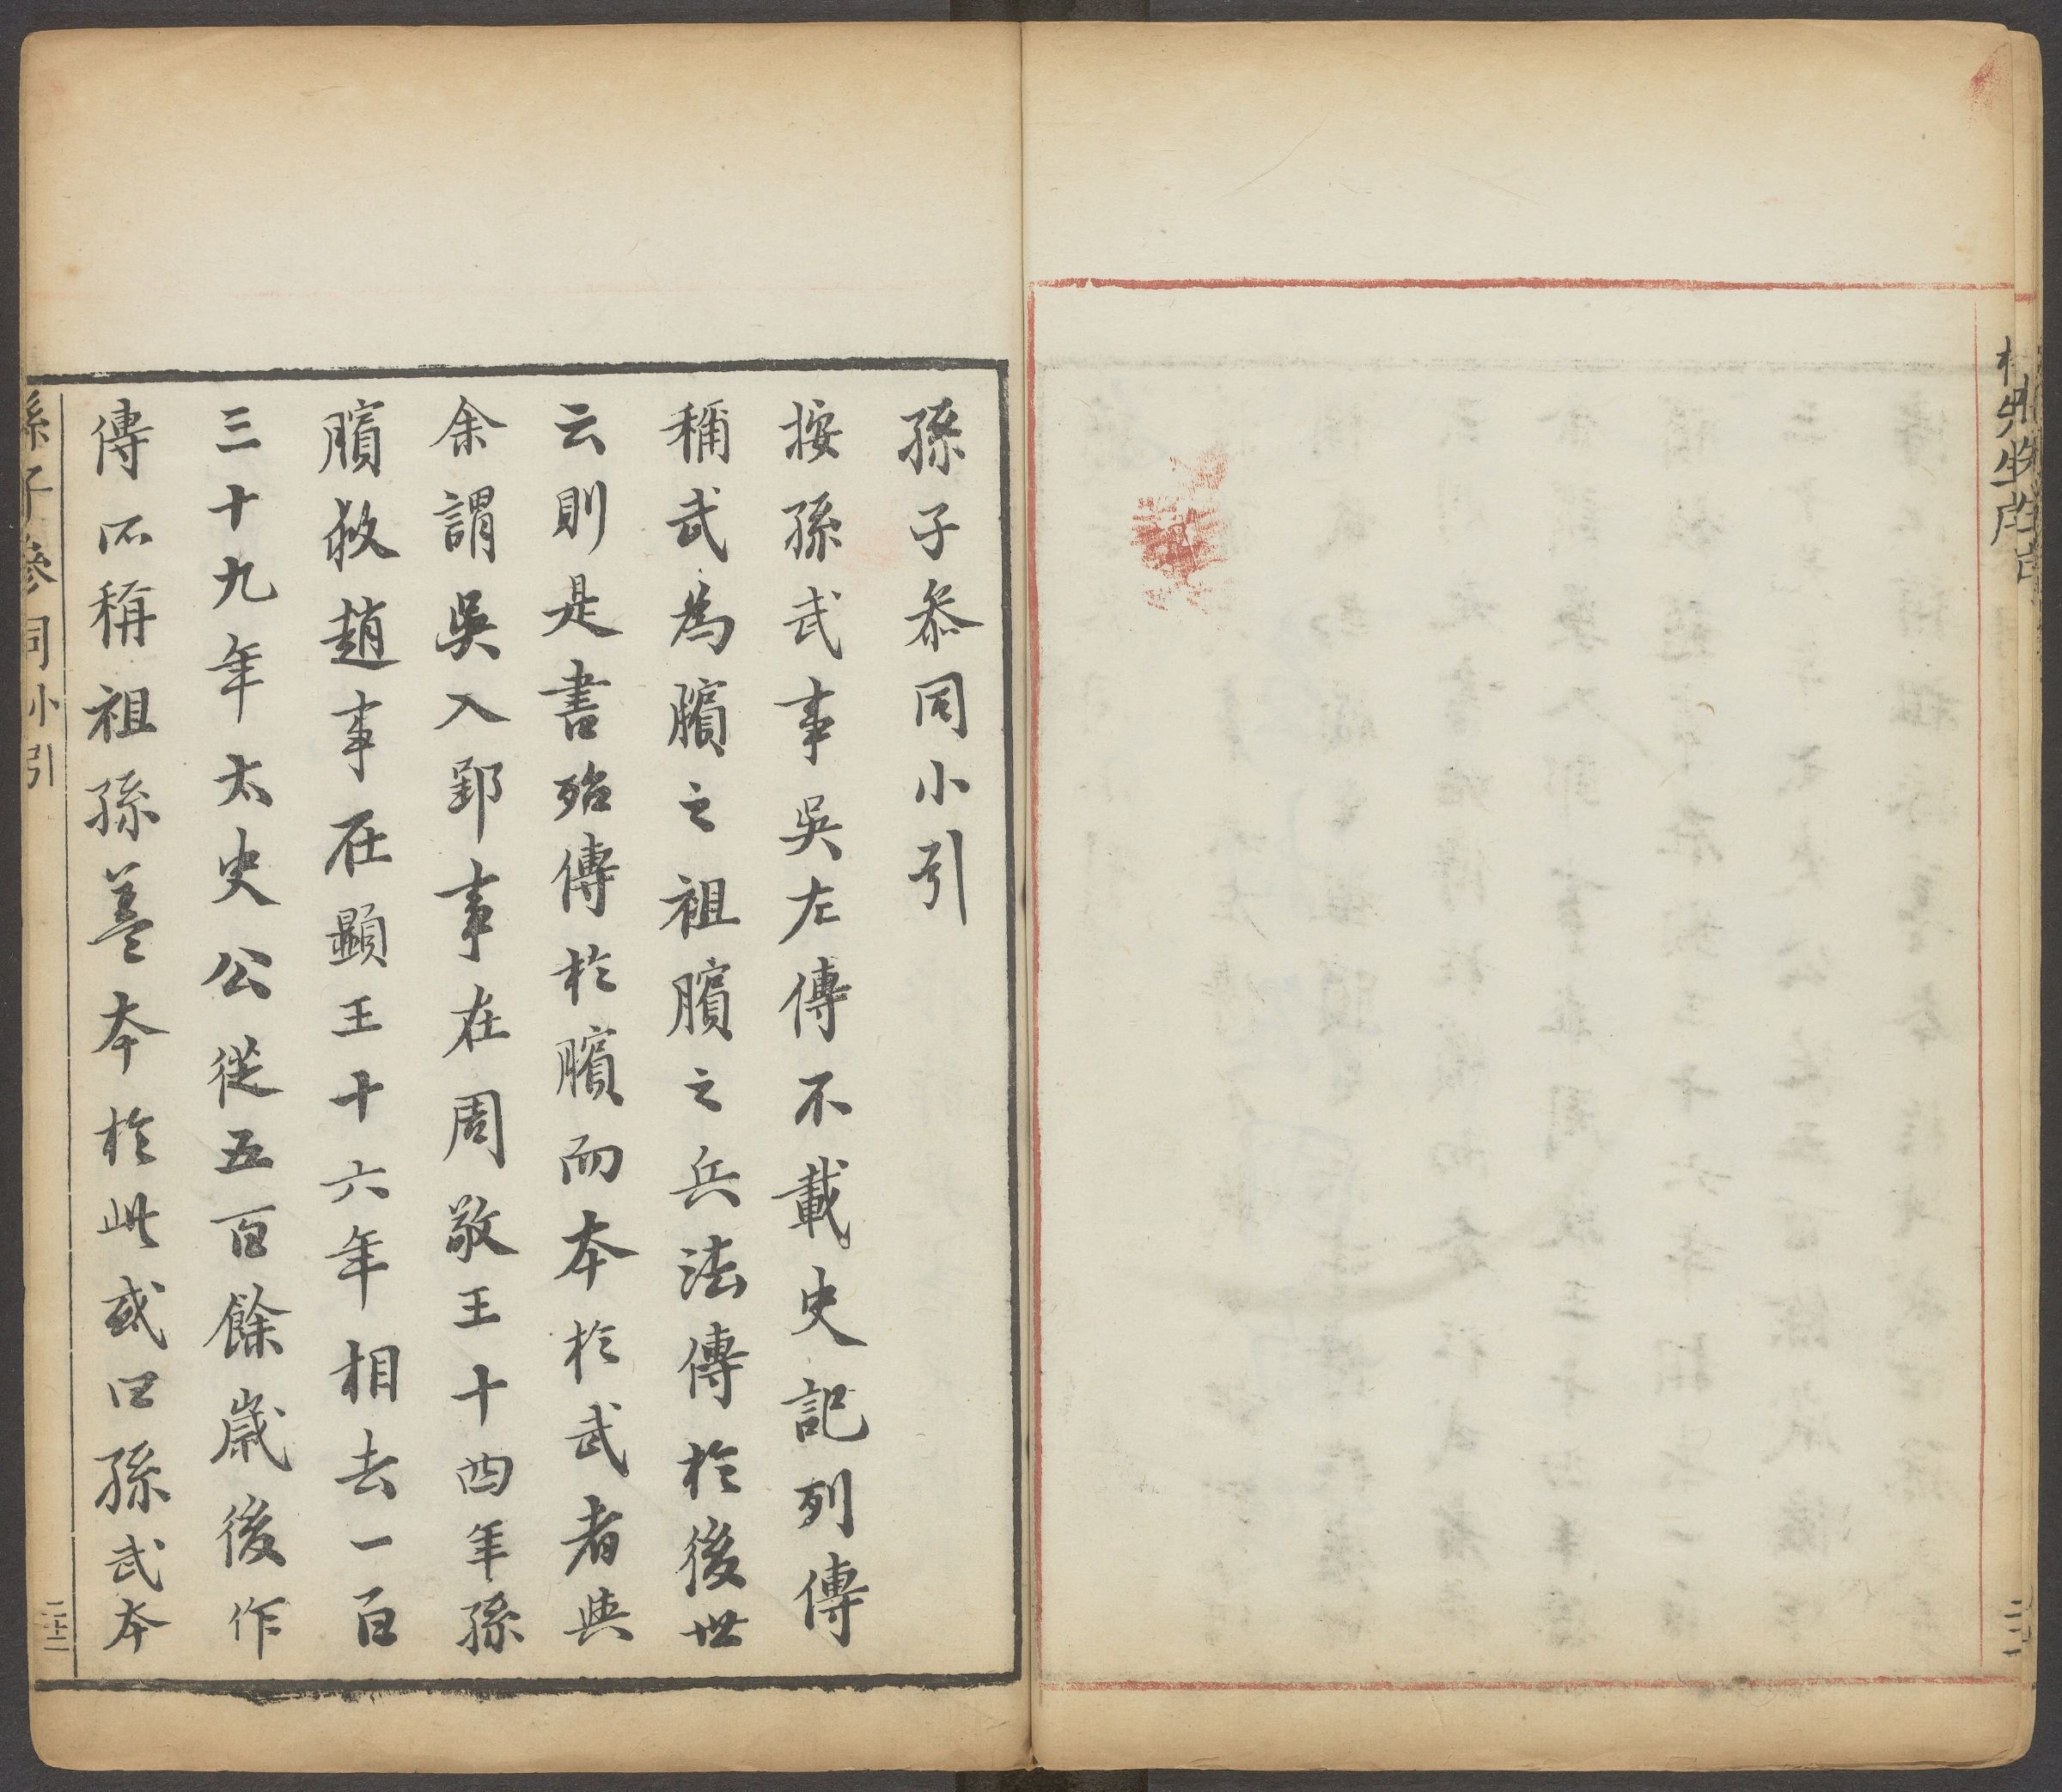 孫子叅同小引
按孫武事吳左傳不載史記列傳
稱武為臏之祖臏之兵法傳於後世
云則是書殆傳於臏而本於武者與
余謂吳入郢事在周敬王十四年孫
臏救趙事在顯王十六年相去一百
三十九年太史公從五百餘歲後作
傳不稱祖孫蓋本於此或曰孫武本
孫子參同小引